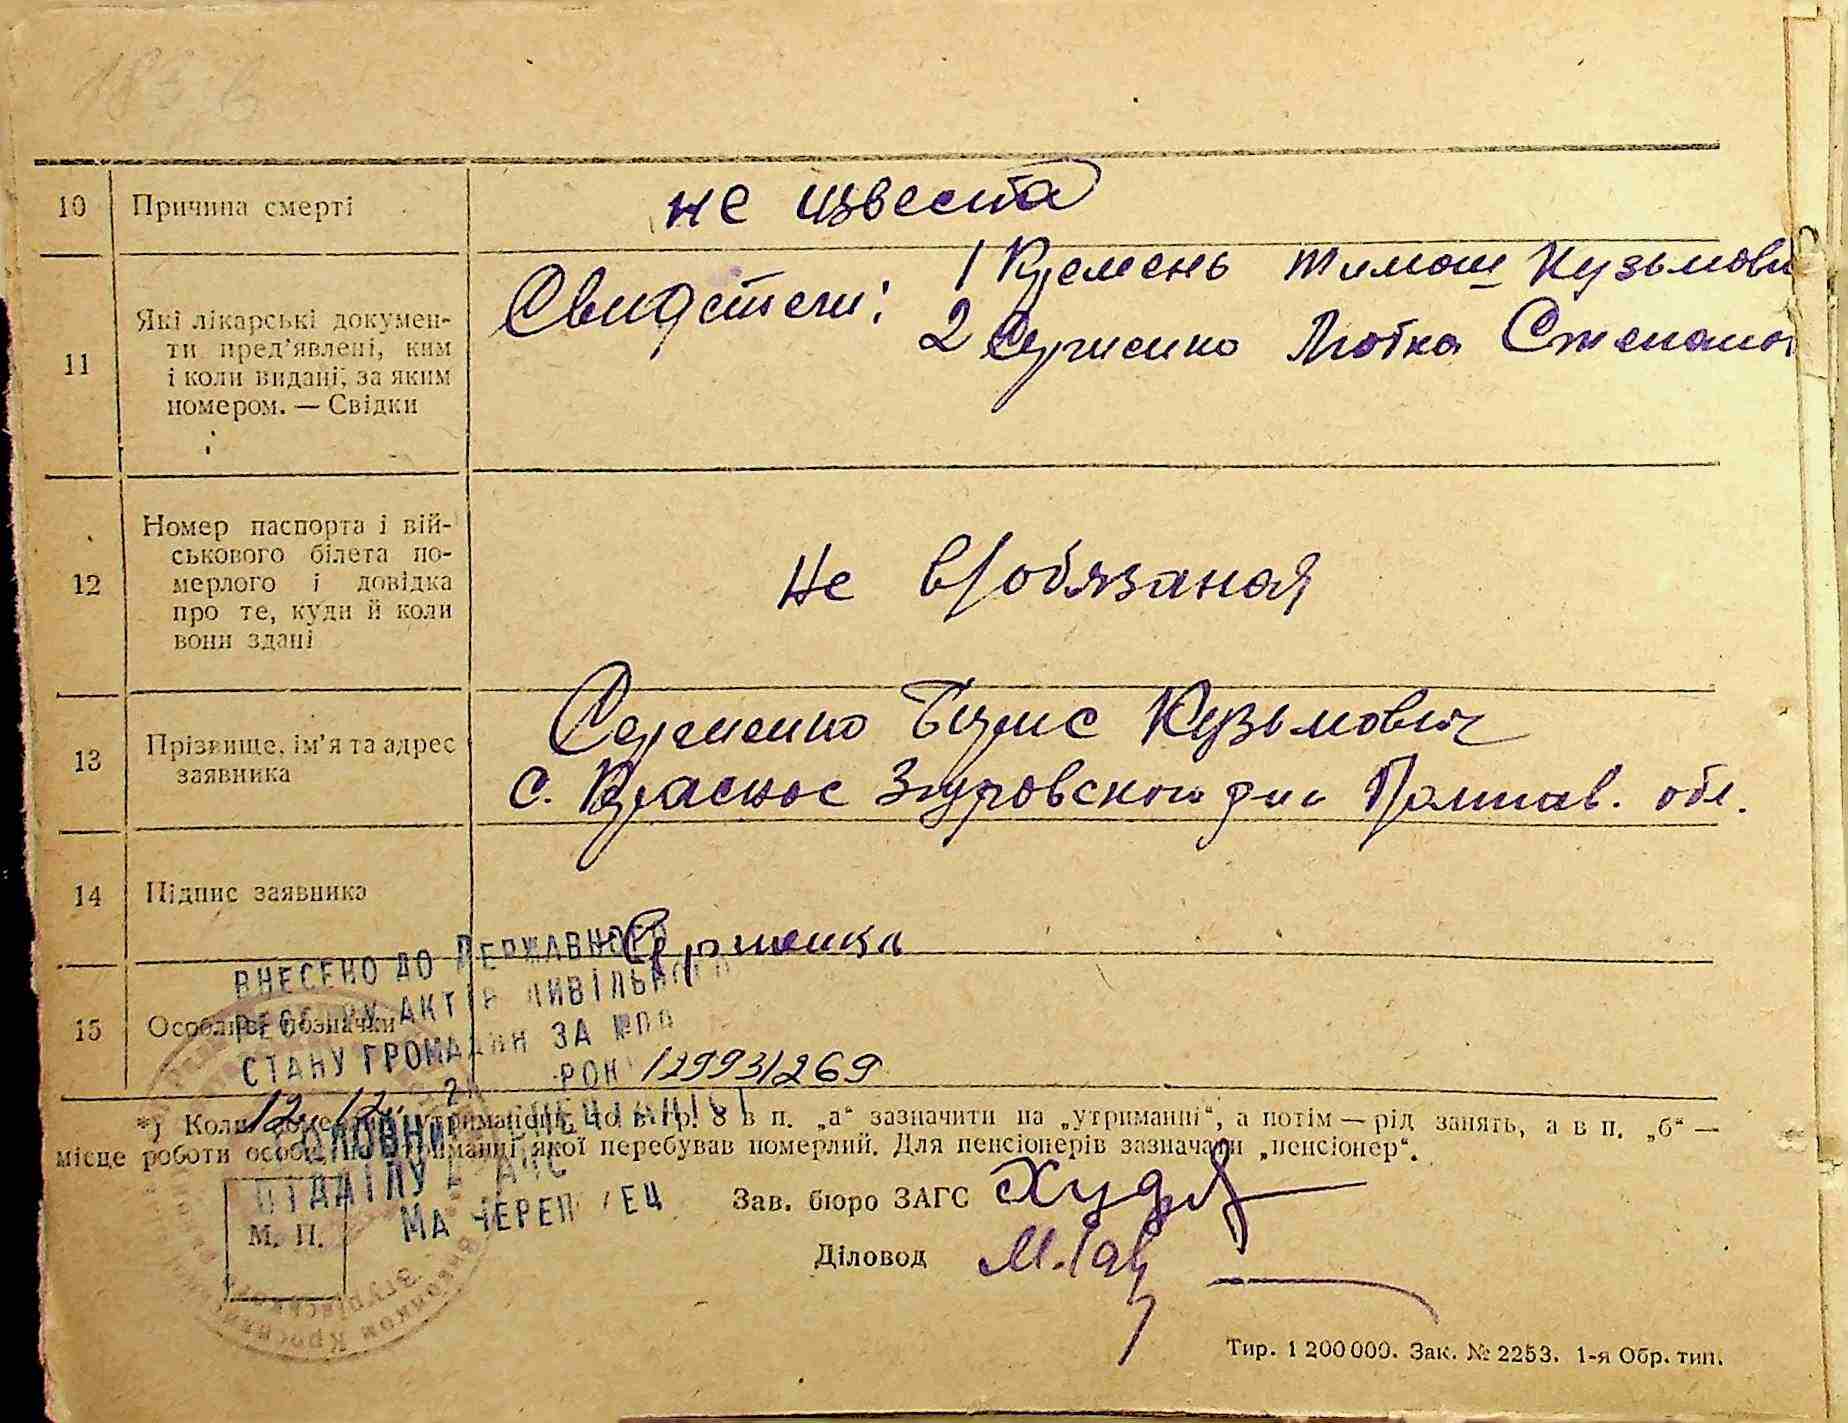 10 Причина смерті не известа
11 Які лікарські докумен-
ти пред’явлені, ким
і коли видані, за яким
номером. — Свідки
Свидетели: 1 Кремень Тимош Кузьмови
2 Сергиенко Мотка Степано
12 Номер паспорта і вій-
ськового білета по-
мерлого і довідка
про те, куди й коли
вони здані
Не в/обязаная
13 Прізвище, ім’я та адрес
заявника
Сергиенко Кузьмович
с. Красное Згуровского р-на Полтав. обл.
14 Підпис заявника
15 Особливі позначки
ВНЕСЕНО ДО ДЕРЖАВНОГО
РЕЄСТРУ АКТІВ ЦИВІЛЬНОГО
СТАНУ ГРОМАДЯН ЗА
РОК 129931269
*) Коли в гр. 8 в п. „а“ зазначити на „утриманні“, а потім — рід занять, а в п. „б“ —
місце роботи особи, на утриманні якої перебував померлий. Для пенсіонерів зазначати „пенсіонер“.
ВІДДІЛУ
М. П.
Зав. бюро ЗАГС
Діловод
Тир. 1 200 000. Зак. № 2253. 1-я Обр. тип.